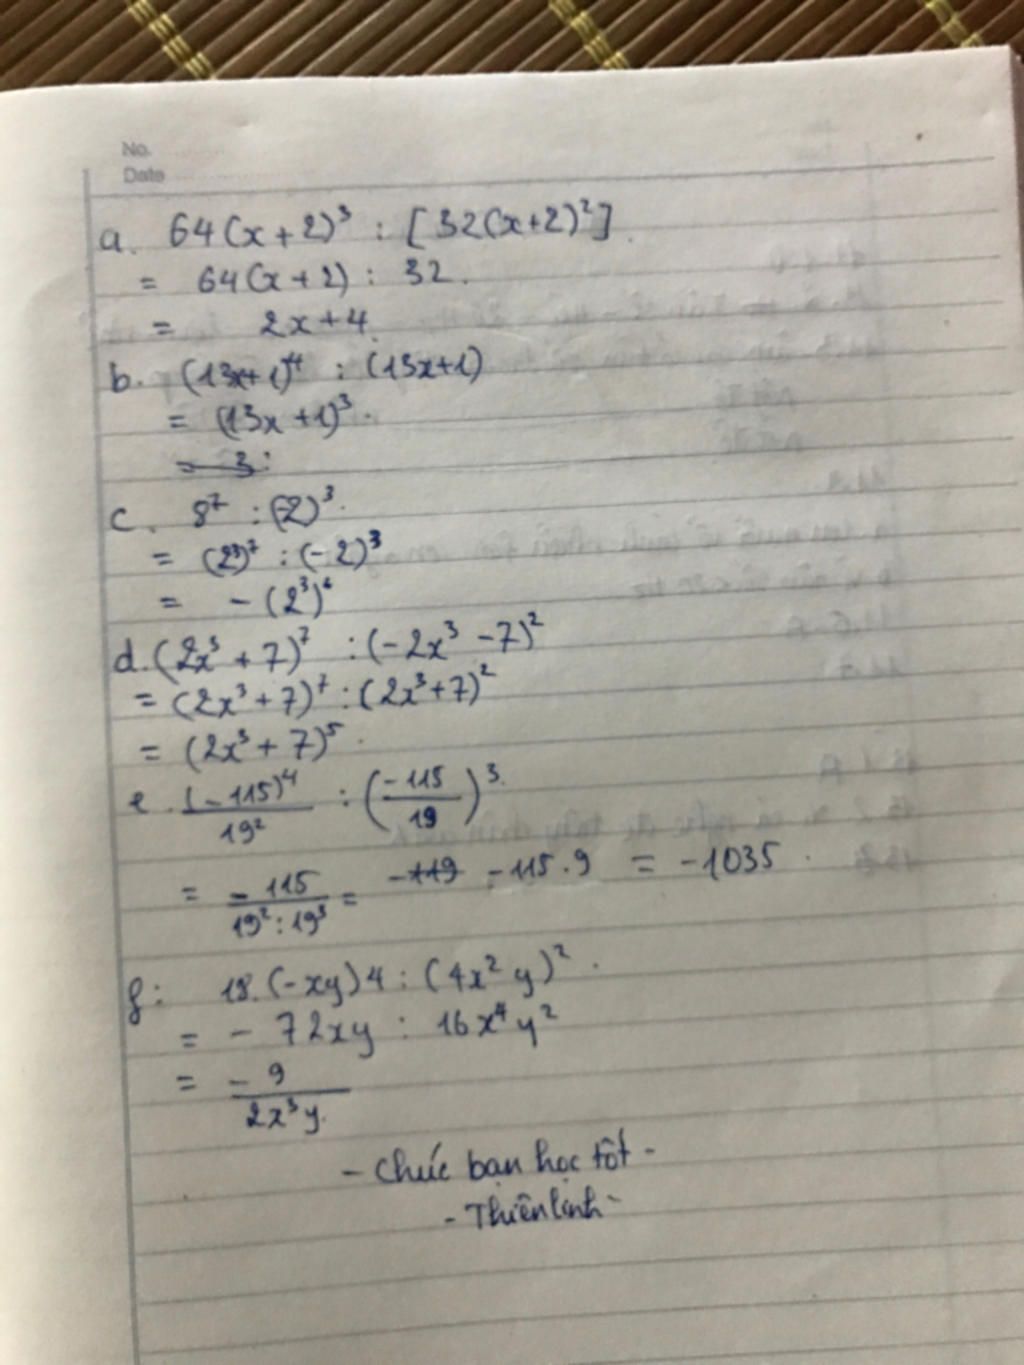 No.
Date
a. 64(x+2)³ : [32(x+2)²]
= 64(x+2) : 32.
= 2x+4.
b. (13x+1)⁴ : (13x+1)
= (13x+1)³.
= 3:
c. 8⁷ : (-2)³.
= (2³)⁷ : (-2)³
= -(2³)⁶
d. (2x³+7)⁷ : (-2x³-7)²
= (2x³+7)⁷ : (2x³+7)²
= (2x³+7)⁵.
e. (-115)⁴/19² : (-115/19)³.
= -115/19² : 19³ = -119 -115.9 = -1035.
f: 18.(-xy)4 : (4x²y)².
= -72xy : 16x⁴y²
= -9/2x³y.
- Chúc bạn học tốt -
- Thiên linh -